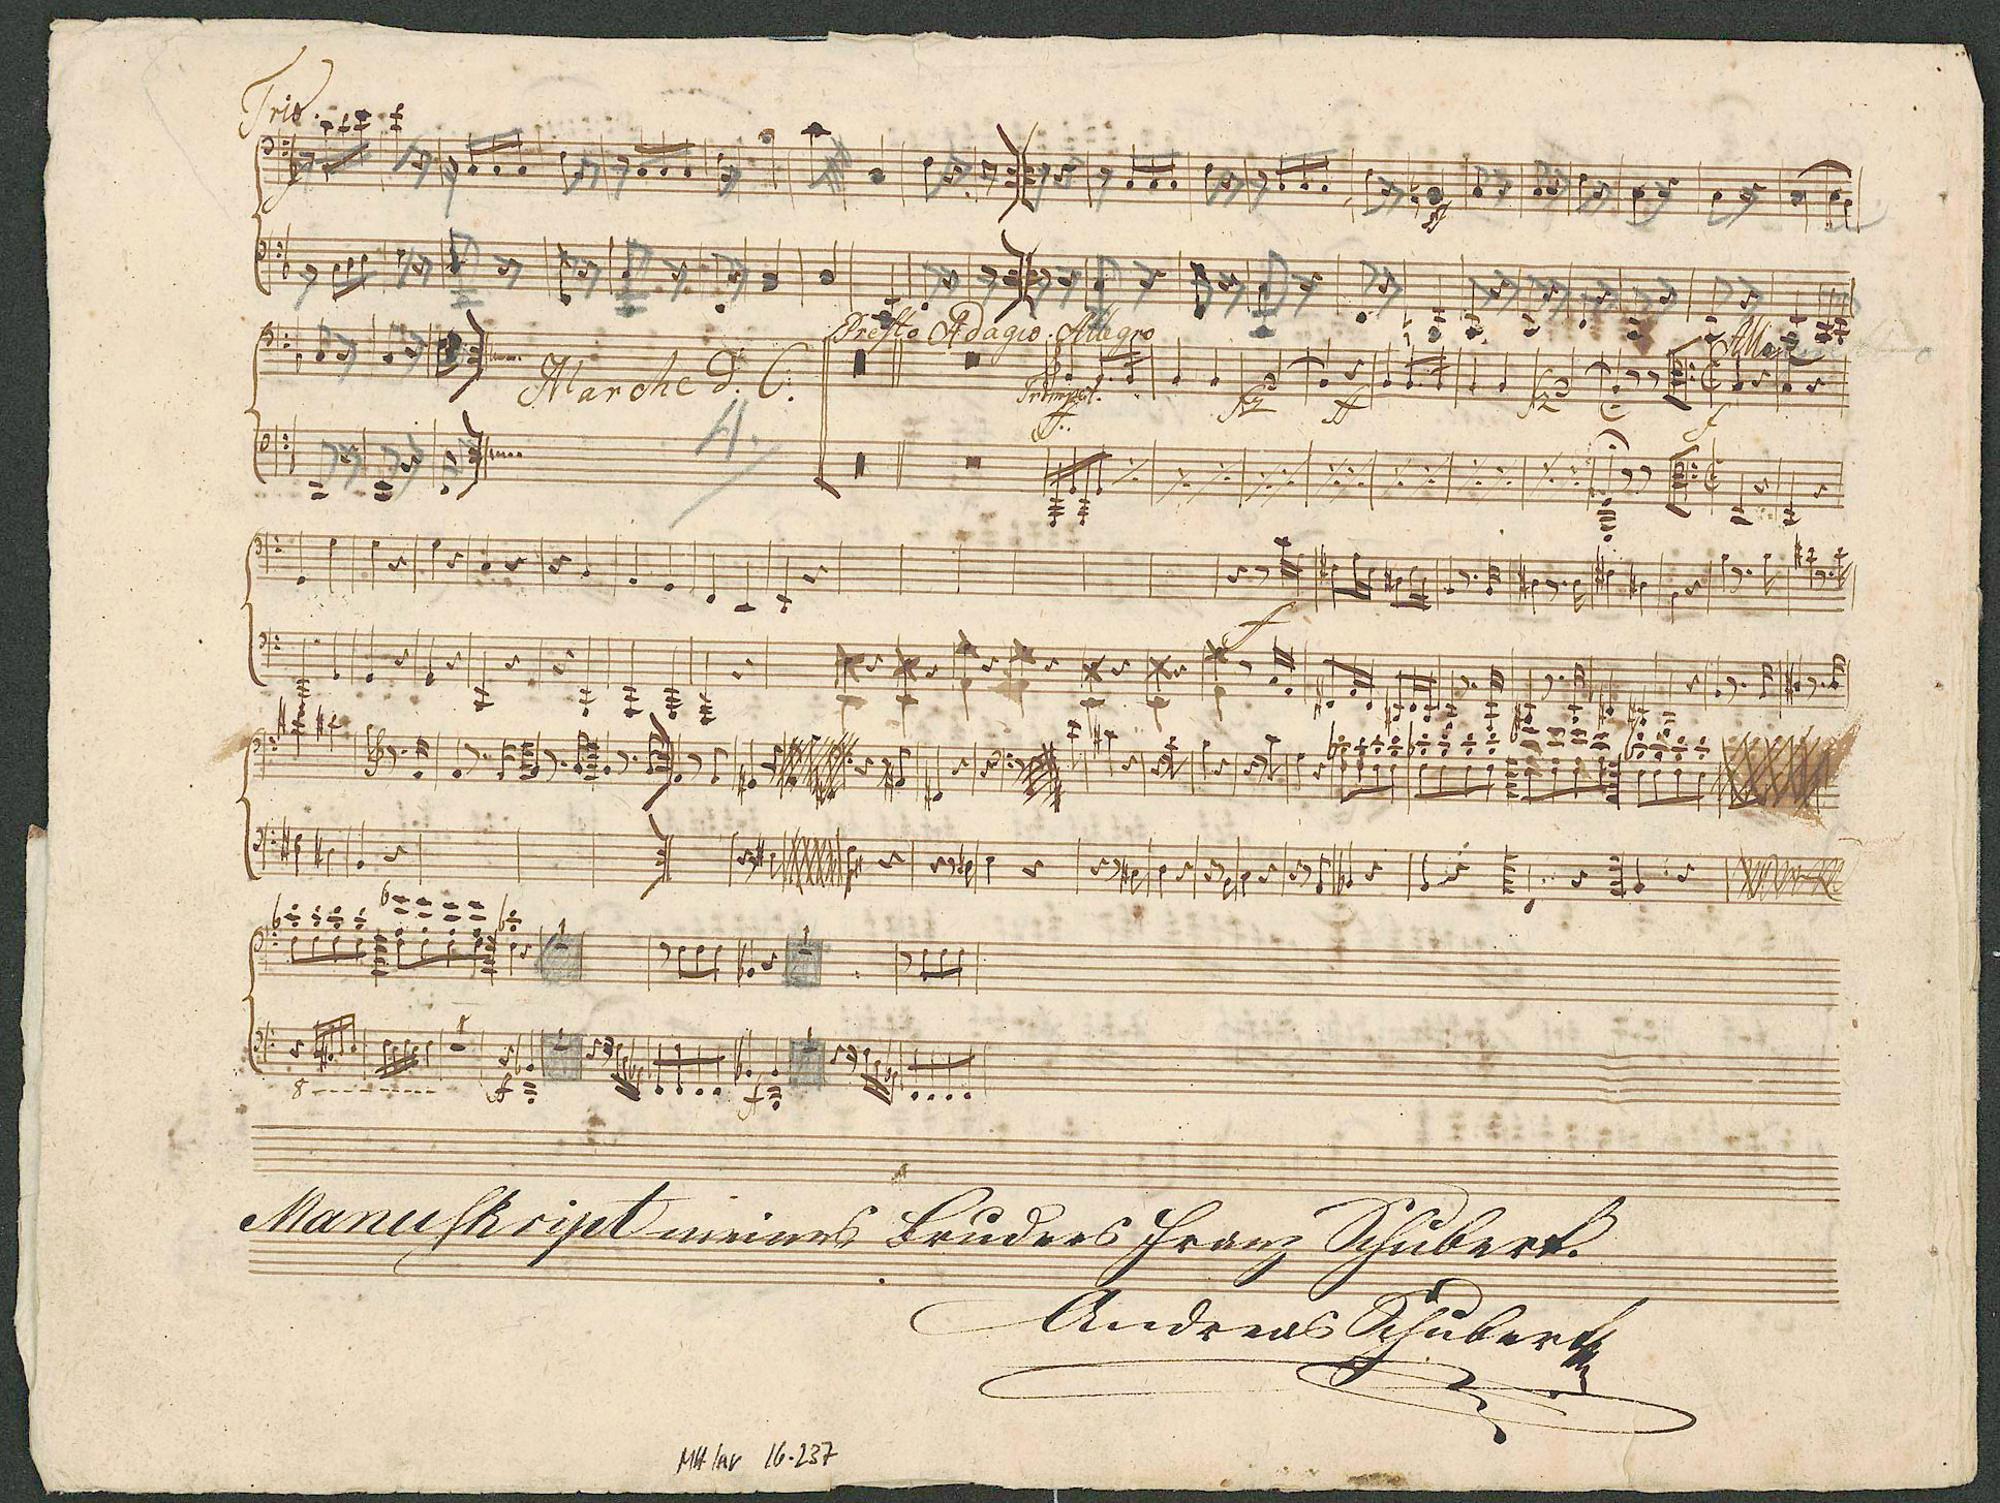 Trio.
Presto Adagio. Allegro
Marche d. C.
Trompet.
ff
fz
ff
fz
f
f
8
Manuskript meines Bruders Franz Schubert.
Andreas Schubert
MH Inv 16.237